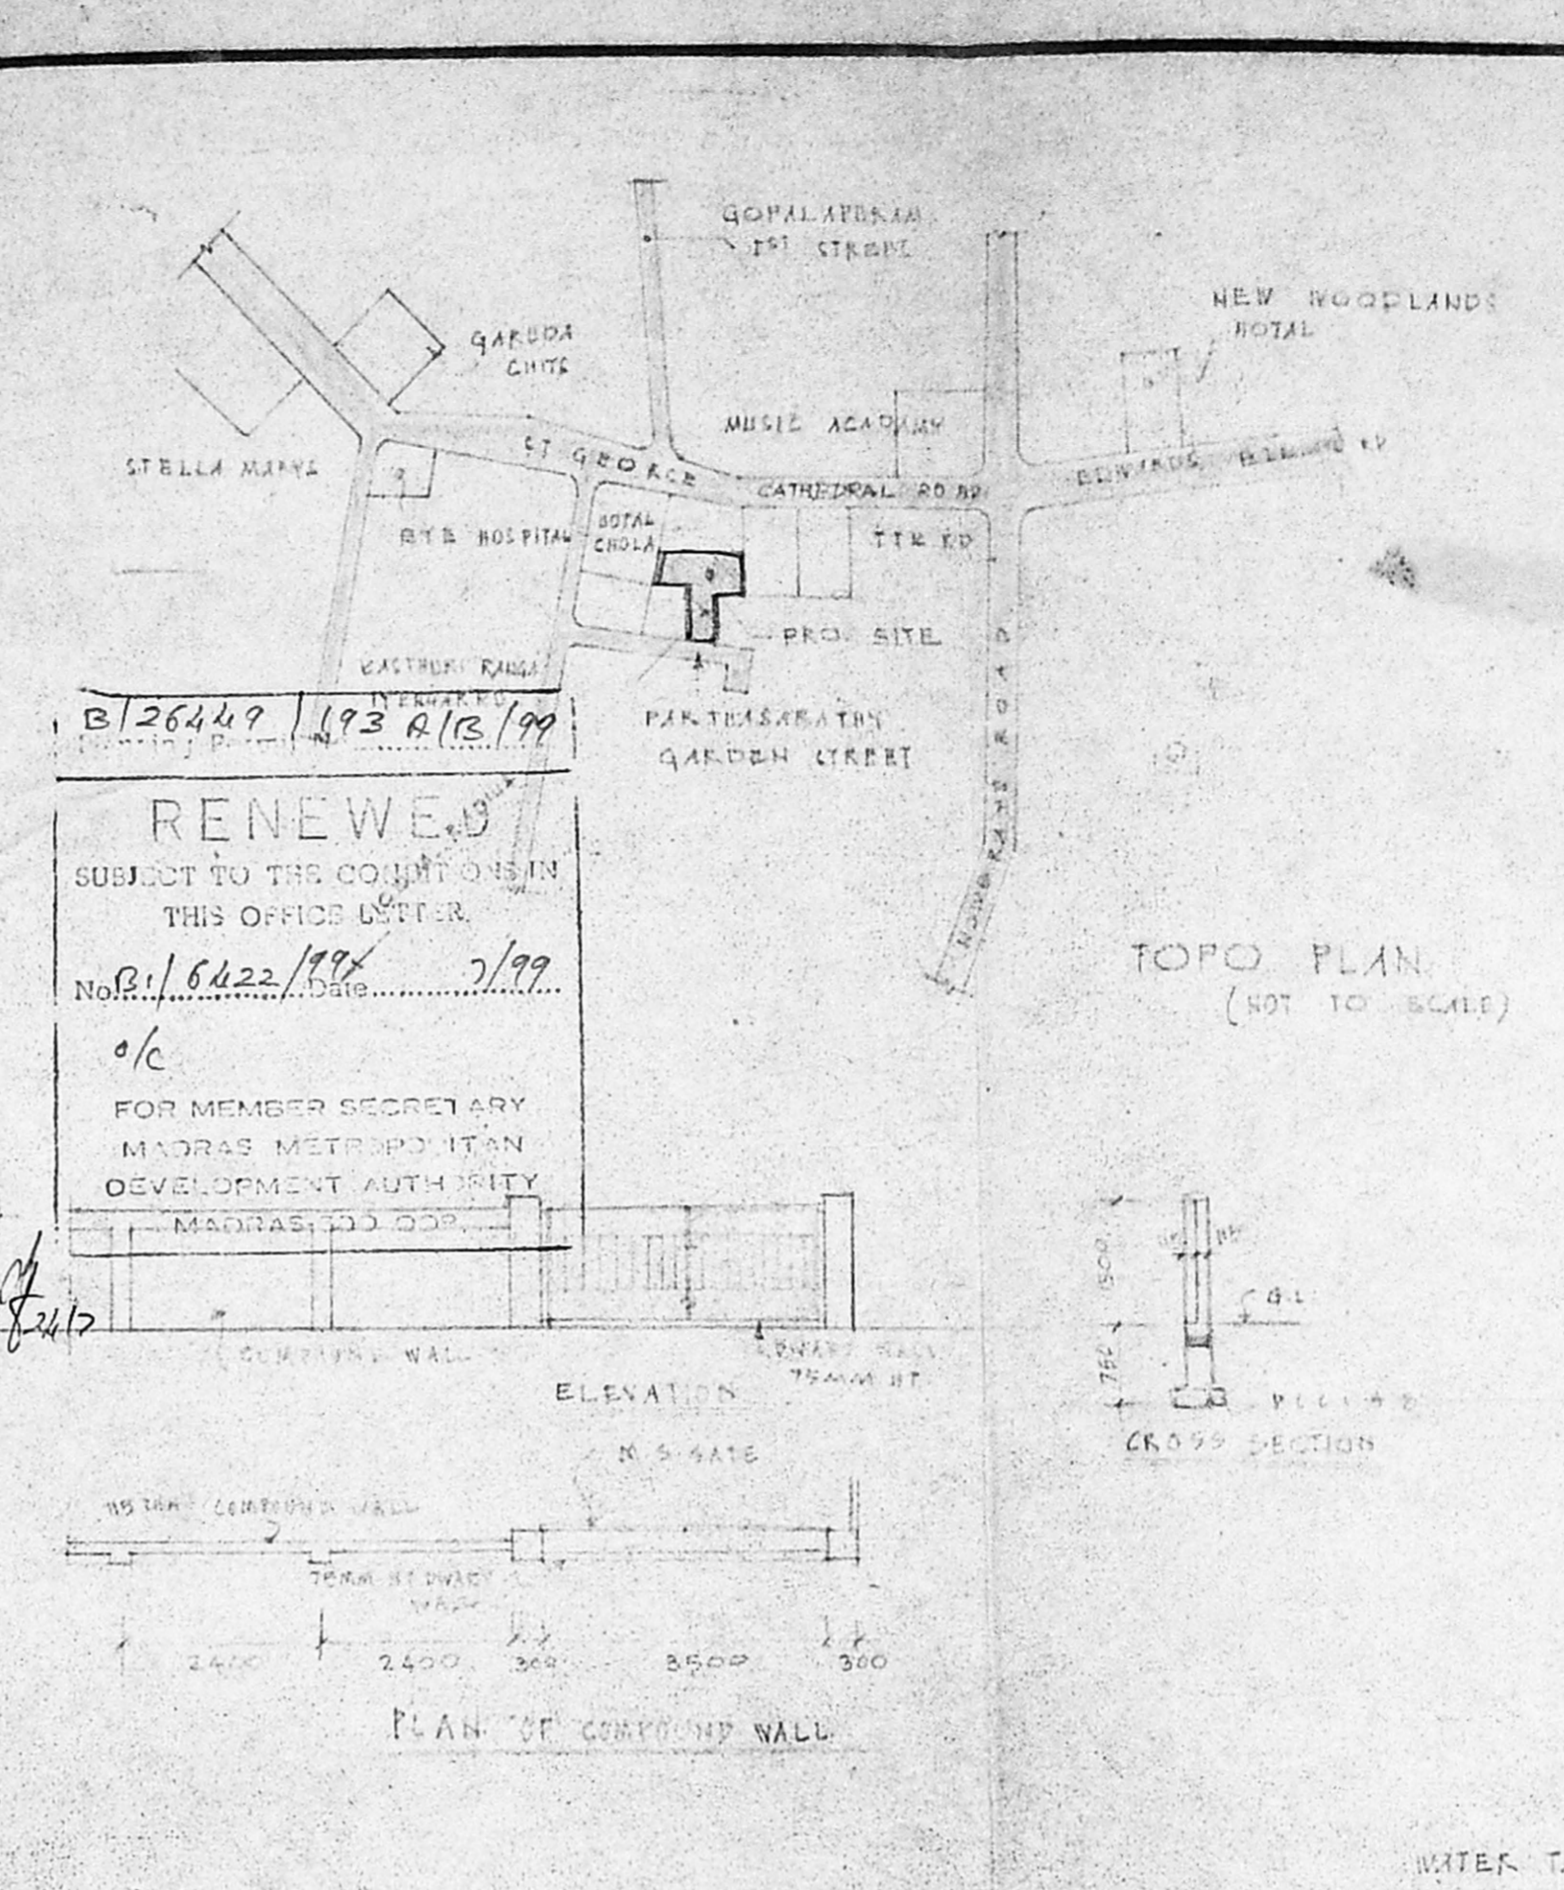 GOPALAPURAM
1ST STREET
NEW WOODLANDS
HOTAL
GARUDA
CHITS
MUSIC ACADAMY
STELLA MARYS
ST GEORGE
CATHEDRAL ROAD
EDWARDS RD
EYE HOSPITAL
HOTAL
CHOLA
TTK RD
PRO. SITE
KASTHURI RANGA
IYENGAR RD
PARTHASARATHY
GARDEN STREET
ROAD
B/26449/193 A/B/99
RENEWED
SUBJECT TO THE CONDITIONS IN
THIS OFFICE LETTER
No. B1/6422/99 Date 7/99
o/c
FOR MEMBER SECRETARY
MADRAS METROPOLITAN
DEVELOPMENT AUTHORITY
MADRAS
24/7
TOPO PLAN
(NOT TO SCALE)
COMPOUND WALL
DWARF WALL
75MM HT
ELEVATION
1500
750
G.L
CROSS SECTION
M.S GATE
115 THK COMPOUND WALL
75MM HT DWARF
WALL
2400 2400 300 3500 300
PLAN OF COMPOUND WALL
WATER T